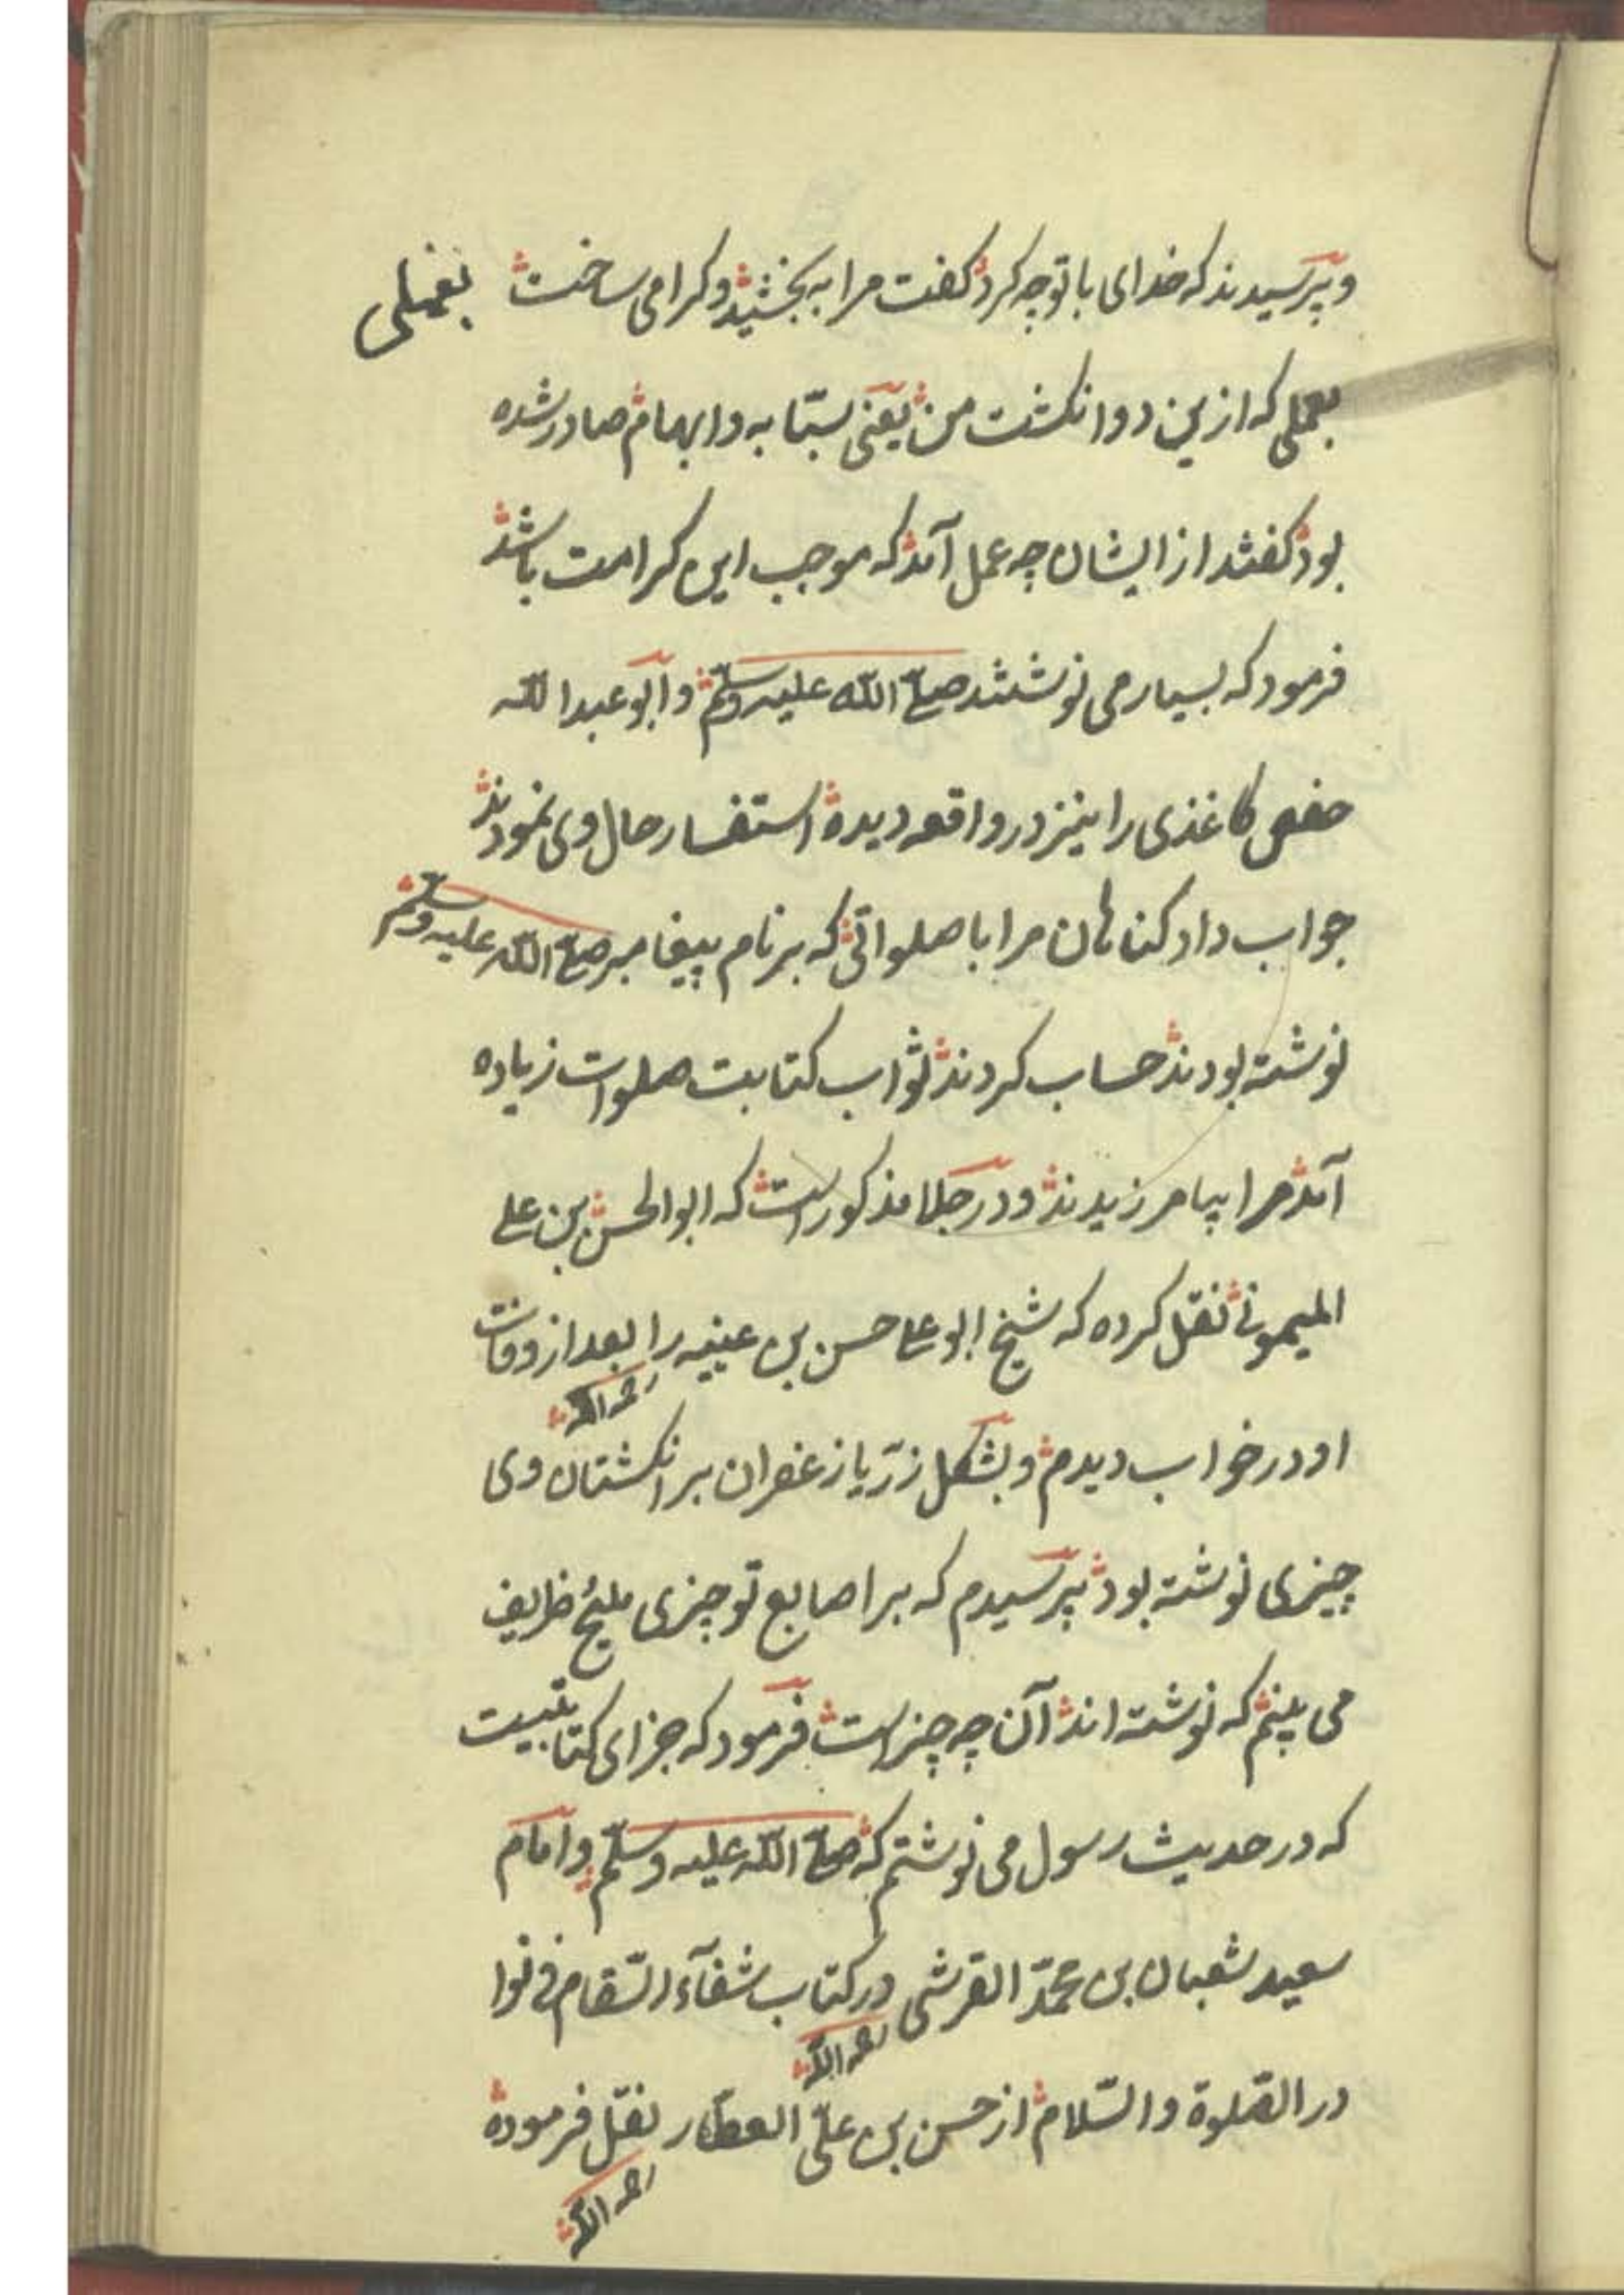 و پرسیدند که خدای با تو چه کرد کفت مرا به بخشید و کرامی ساخت بفضلی
بعملی که ازین دو انکشت من یعنی سبّابه و ابهام صادر شده
بود کفتند از ایشان چه عمل آمد که موجب این کرامت باشد
فرمود که بسیار می نوشتند صلّی اللّه علیه وسلّم و ابو عبد اللّه
حفص کاغذی را نیز در واقعه دیده استفسار حال وی نمودند
جواب داد کناهان مرا با صلواتی که بر نام پیغامبر صلّی اللّه علیه وسلّم
نوشته بودند حساب کردند ثواب کتابت صلوات زیاده
آمد مرا بیامرزیدند و در جلا مذکور است که ابو الحسن بن علی
المیمونی نقل کرده که شیخ ابو علی حسن بن عیینه را بعد از وفات
رحمه اللّه
او در خواب دیدم و بشکل زر یا زعفران بر انکشتان وی
چیزی نوشته بود پرسیدم که بر اصابع تو چیزی ملیح ظریف
می بینم که نوشته اند آن چه چیز است فرمود که جزای کتابتیست
که در حدیث رسول می نوشتم که صلّی اللّه علیه وسلّم و امام
سعید شعبان بن محمّد القرشی در کتاب شفآء السّقام فی نوا
رحمه اللّه
در الصّلوة والسّلام از حسن بن علّی العطّار نقل فرموده
رحمه اللّه